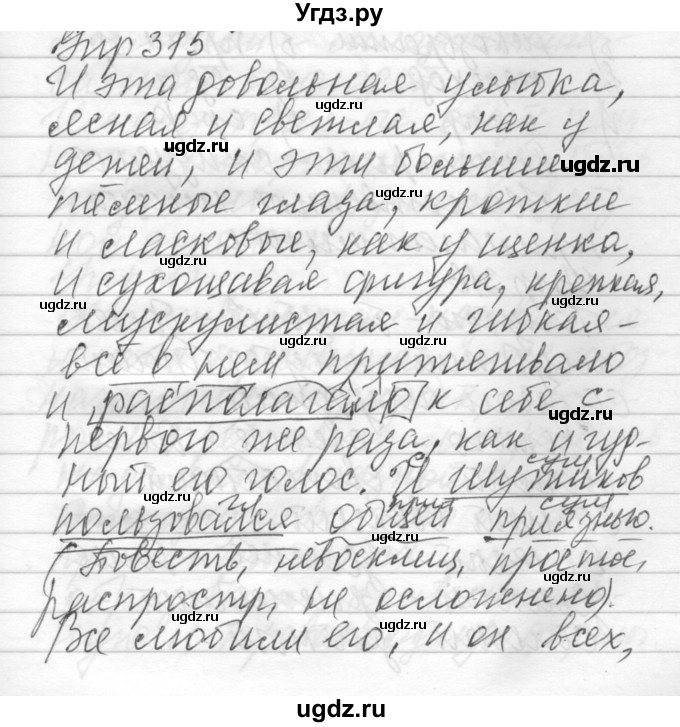 Угдз.ру
Упр 315
И эта довольная улыбка,
ясная и светлая, как у
детей, и эти большие
тёмные глаза, кроткие
и ласковые, как у щенка,
и сухощавая фигура, крепкая,
мускулистая и гибкая -
всё в нем притягивало
и располагало к себе с
первого же раза, как и чуд-
ный его голос. И Шутиков
пользовался общей приязнью.
(Повеств, невосклиц, простое,
распростр, не осложнено).
Все любили его, и он всех,
ugdz.ru